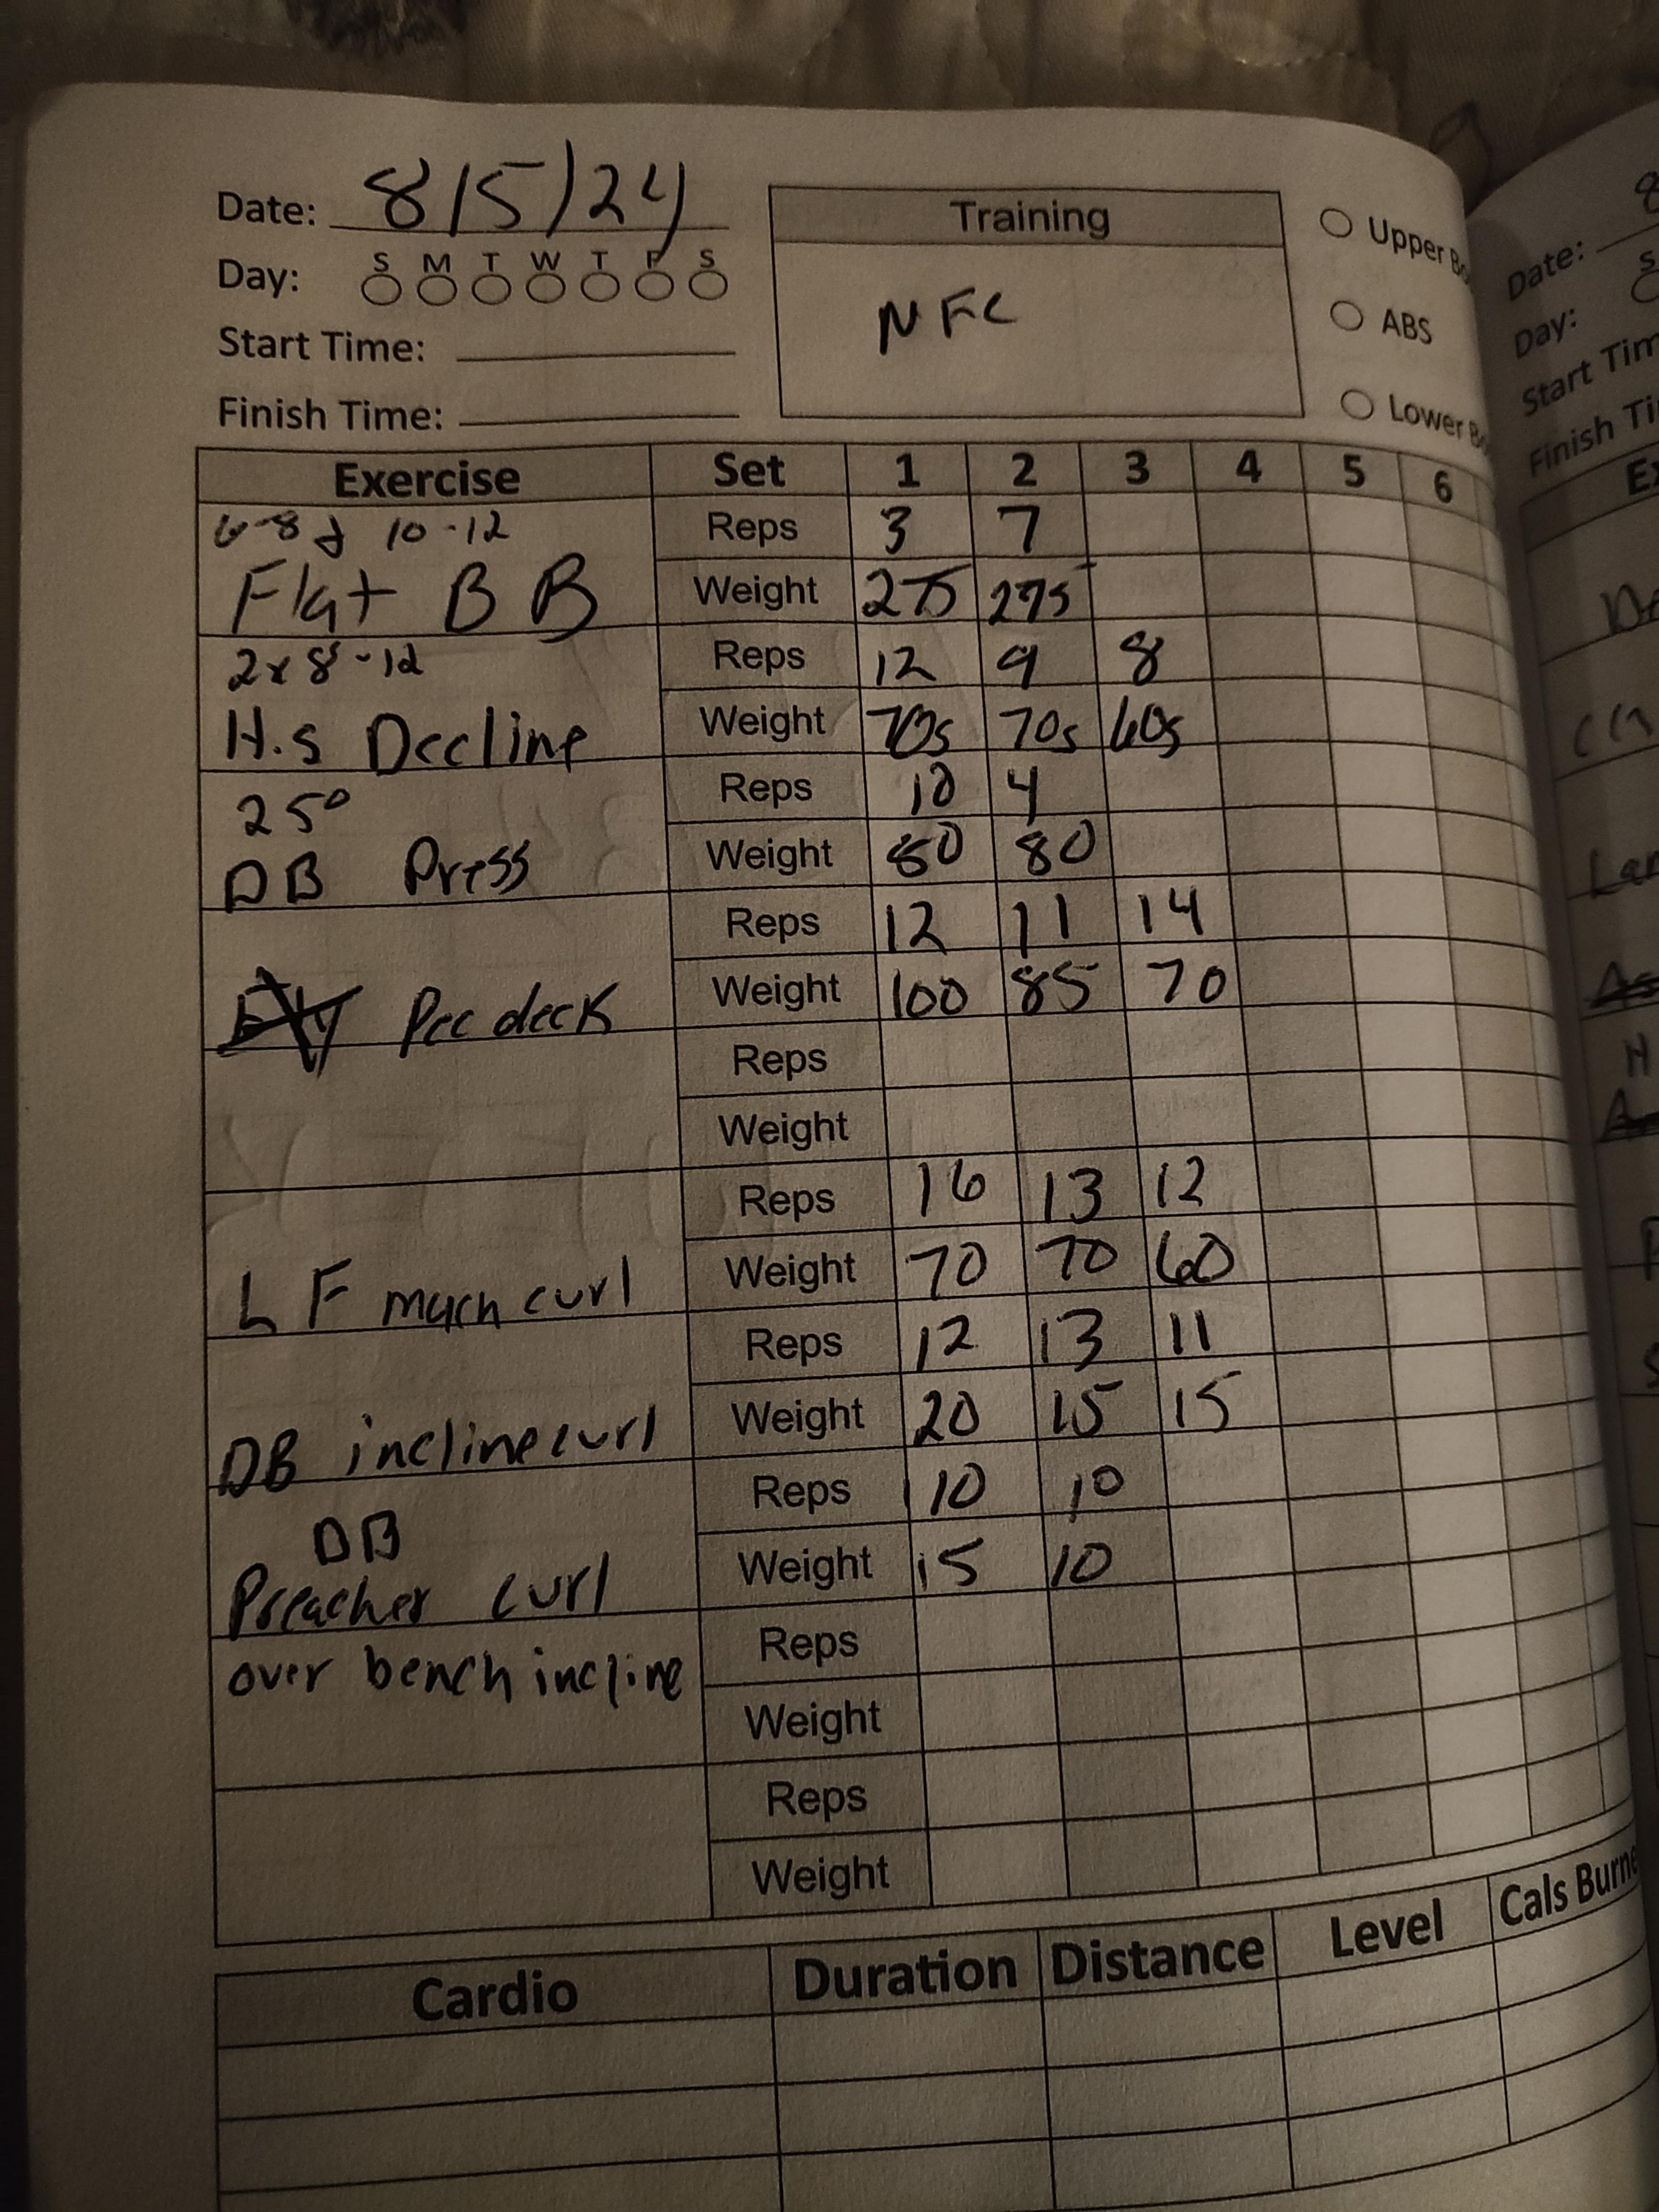 Date: 8/5/24
Day: S M T W T F S
Start Time:
Finish Time:
Training
NFC
Upper Bo
ABS
Lower Bo
Exercise Set 1 2 3 4 5 6
6-8 10-12 Reps 3 7
Flat BB Weight 275 275
2x8-12 Reps 12 9 8
H.S Decline Weight 70s 70s 60s
25° Reps 10 4
DB Press Weight 80 80
Reps 12 11 14
Pec deck Weight 100 85 70
Reps
Weight
Reps 16 13 12
LF mach curl Weight 70 70 60
Reps 12 13 11
DB incline curl Weight 20 15 15
DB Reps 10 10
Preacher curl Weight 15 10
over bench incline Reps
Weight
Reps
Weight
Cardio Duration Distance Level Cals Burne
Date:
Day: S
Start Tim
Finish Ti
Ex